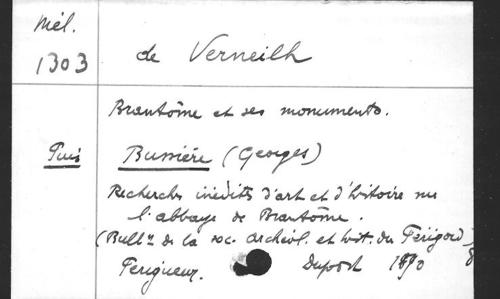 Mél.
1303
de Verneilh
Brantôme et ses monuments.
Puis Bussière (Georges)
Recherches inédits d'art et d'histoire sur
l'abbaye de Brantôme.
(Bull.n de la soc. archéol. et hist. du Périgord
Périgueux. Dupont 1890
8